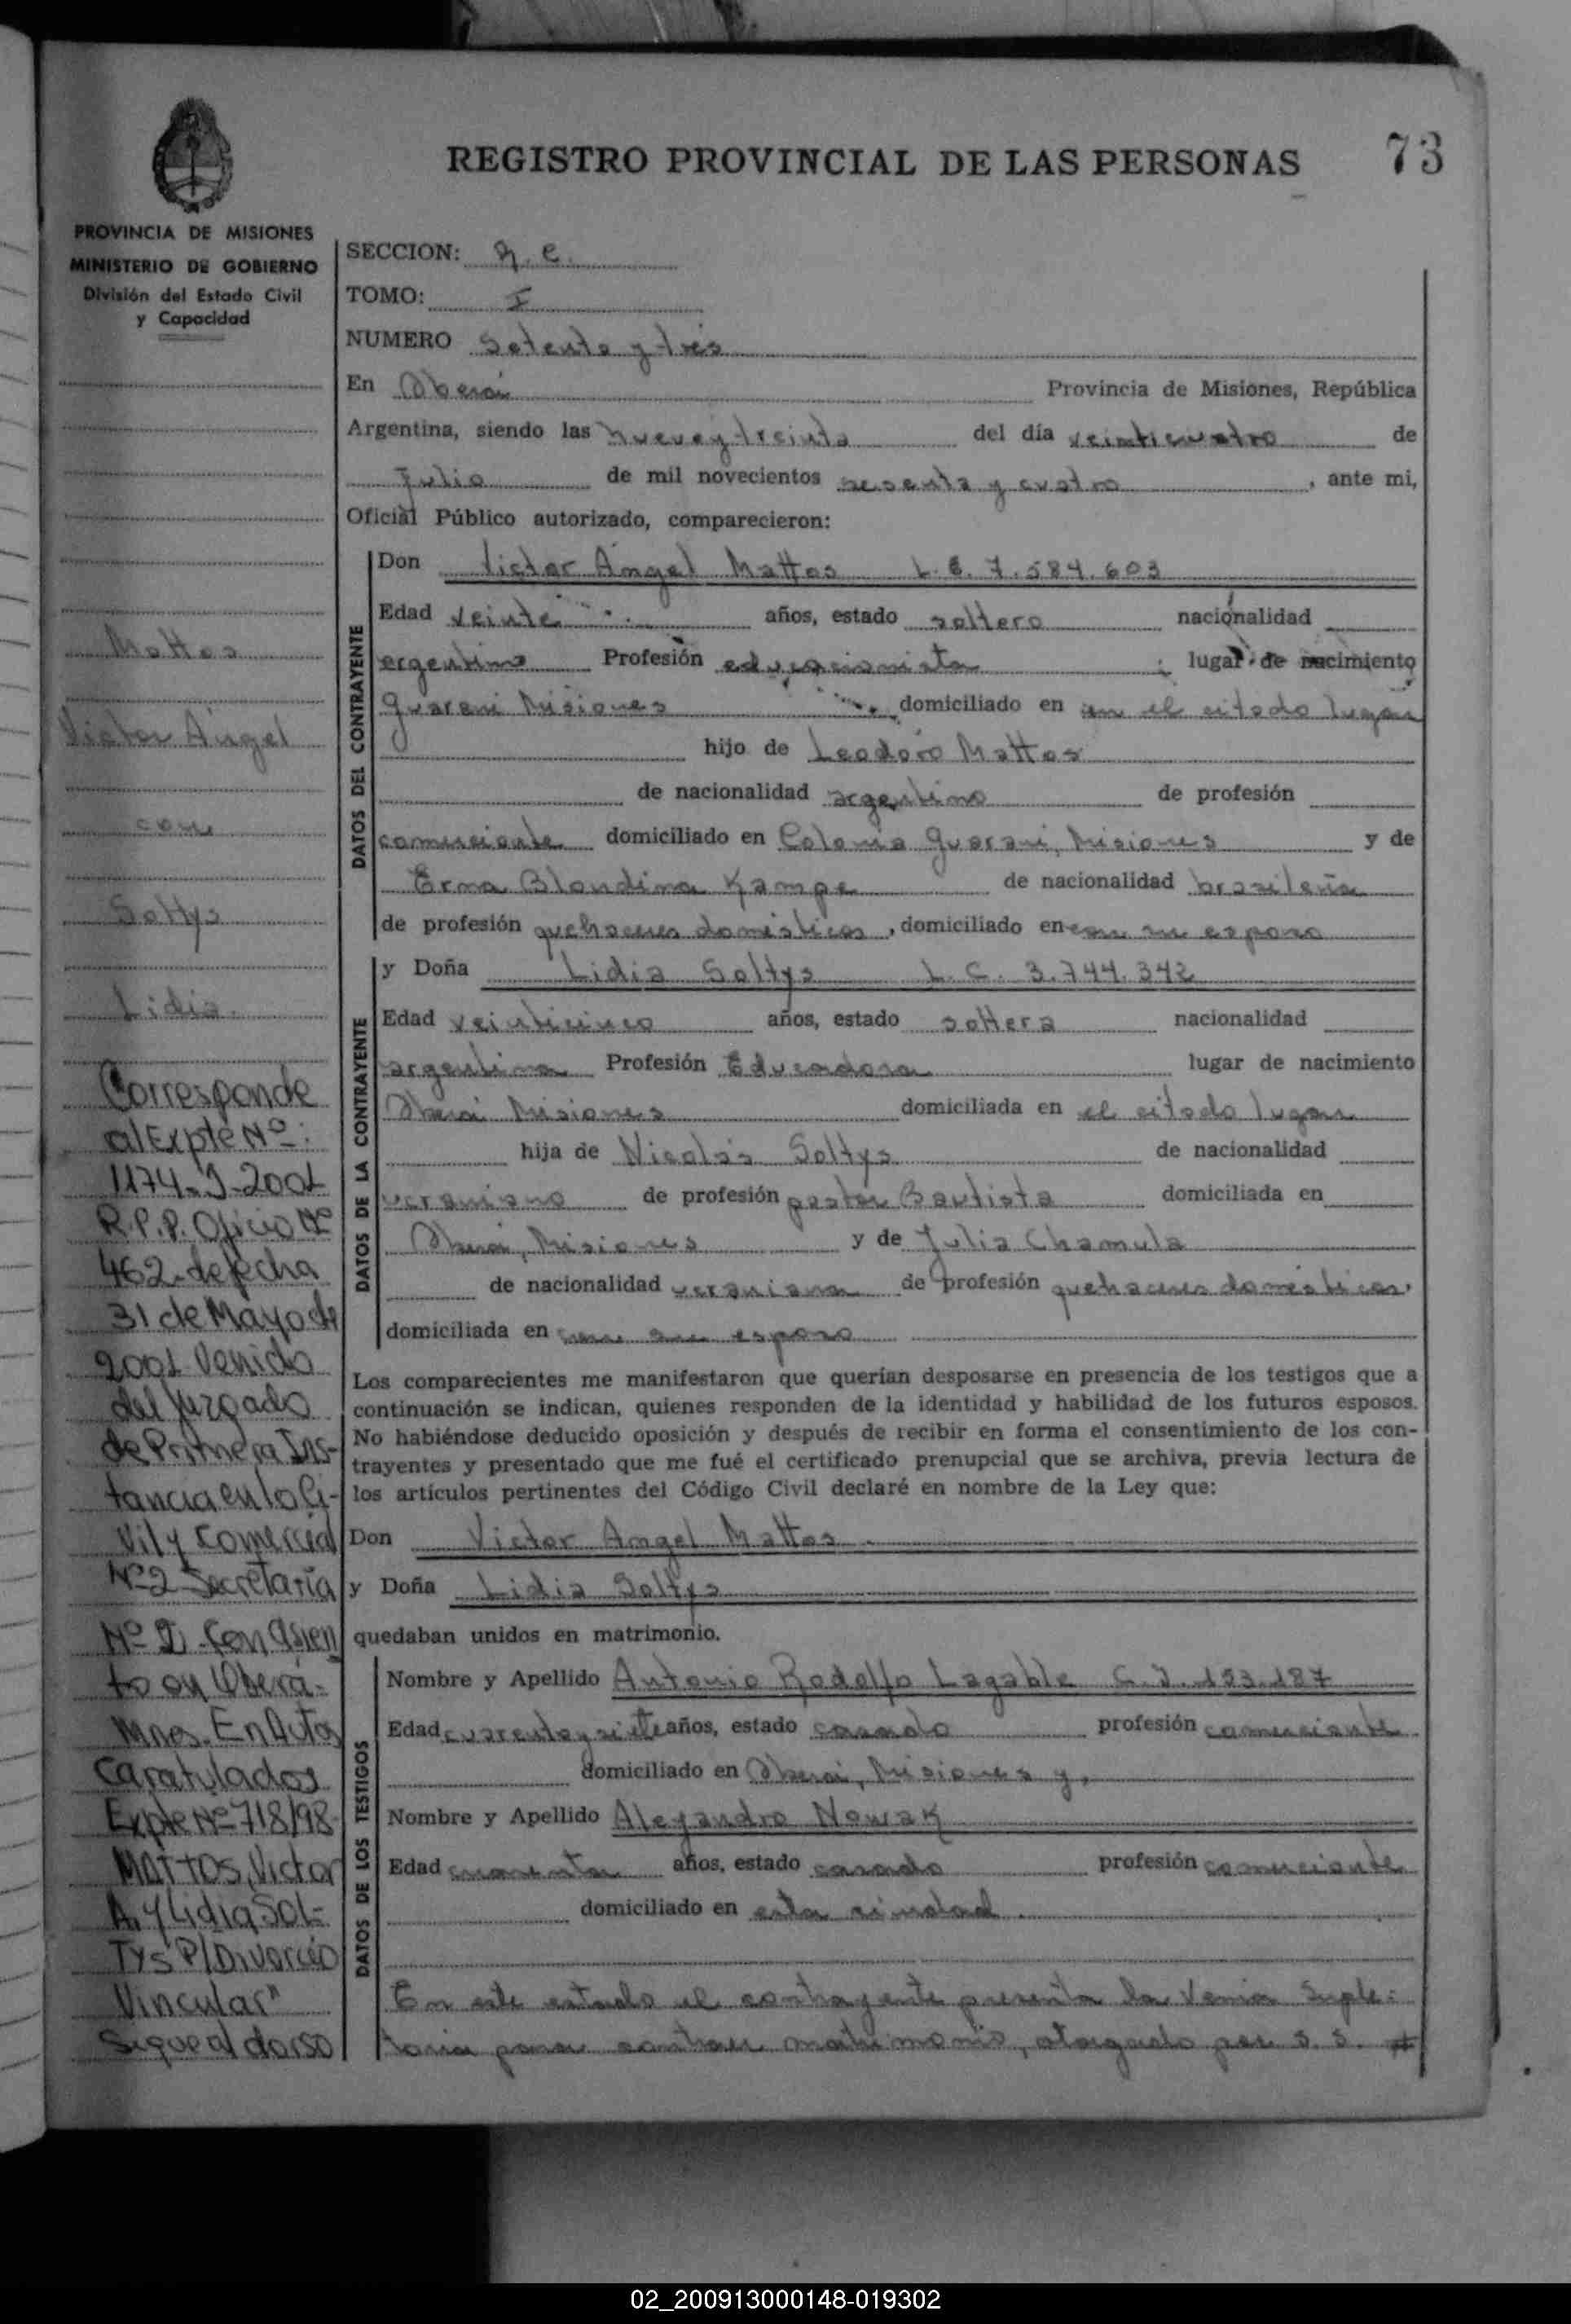 REGISTRO PROVINCIAL DE LAS PERSONAS
73
PROVINCIA DE MISIONES
MINISTERIO DE GOBIERNO
División del Estado Civil
y Capacidad
Mattos
Victor Angel
con
Soltys
Lidia.
Corresponde
al Expte Nº:
1174-J-2001
R.P.P. Oficio Nº
462- de fecha
31 de Mayo de
2001- Venido
del Juzgado
de Primera Ins-
tancia en lo Ci-
vil y Comercial
Nº 2 Secretaria
Nº 2 - Con Asien
to en Oberá-
Mnes. En Autos
Caratulados
Expte Nº 718/98-
MATTOS, Victor
A. y Lidia SOL-
TYS P/Divorcio
Vincular"
Sigue al dorso
SECCION:
TOMO: I
NUMERO Setenta y tres
En Oberá Provincia de Misiones, República
Argentina, siendo las nueve y treinta del día veinticuatro de
Julio de mil novecientos sesenta y cuatro, ante mi,
Oficial Público autorizado, comparecieron:
DATOS DEL CONTRAYENTE
Don Victor Angel Mattos L.E. 7.584.603
Edad veinte años, estado soltero nacionalidad
argentino Profesión educacionista lugar de nacimiento
Guarani Misiones domiciliado en en el citado lugar
hijo de Leodoro Mattos
de nacionalidad argentino de profesión
comerciante domiciliado en Colonia Guarani, Misiones y de
Erma Blondina Kampe de nacionalidad brasileña
de profesión quehaceres domésticos, domiciliado en con su esposo
DATOS DE LA CONTRAYENTE
y Doña Lidia Soltys L.C. 3.744.342
Edad veinticinco años, estado soltera nacionalidad
argentina Profesión Educadora lugar de nacimiento
Oberá Misiones domiciliada en el citado lugar
hija de Nicolás Soltys de nacionalidad
ucraniano de profesión pastor Bautista domiciliada en
Oberá, Misiones y de Julia Chamula
de nacionalidad ucraniana de profesión quehaceres domésticos,
domiciliada en con su esposo
Los comparecientes me manifestaron que querían desposarse en presencia de los testigos que a
continuación se indican, quienes responden de la identidad y habilidad de los futuros esposos.
No habiéndose deducido oposición y después de recibir en forma el consentimiento de los con-
trayentes y presentado que me fué el certificado prenupcial que se archiva, previa lectura de
los artículos pertinentes del Código Civil declaré en nombre de la Ley que:
Don Victor Angel Mattos
y Doña Lidia Soltys
quedaban unidos en matrimonio.
DATOS DE LOS TESTIGOS
Nombre y Apellido Antonio Rodolfo Lagable C.I. 153.187
Edad cuarenta y siete años, estado casado profesión comerciante
domiciliado en Oberá, Misiones y,
Nombre y Apellido Alejandro Nowak
Edad cuarenta años, estado casado profesión comerciante
domiciliado en esta ciudad.
En este estado el contrayente presenta la Venia Suple-
toria para contraer matrimonio, otorgado por S. S. #
02_200913000148-019302